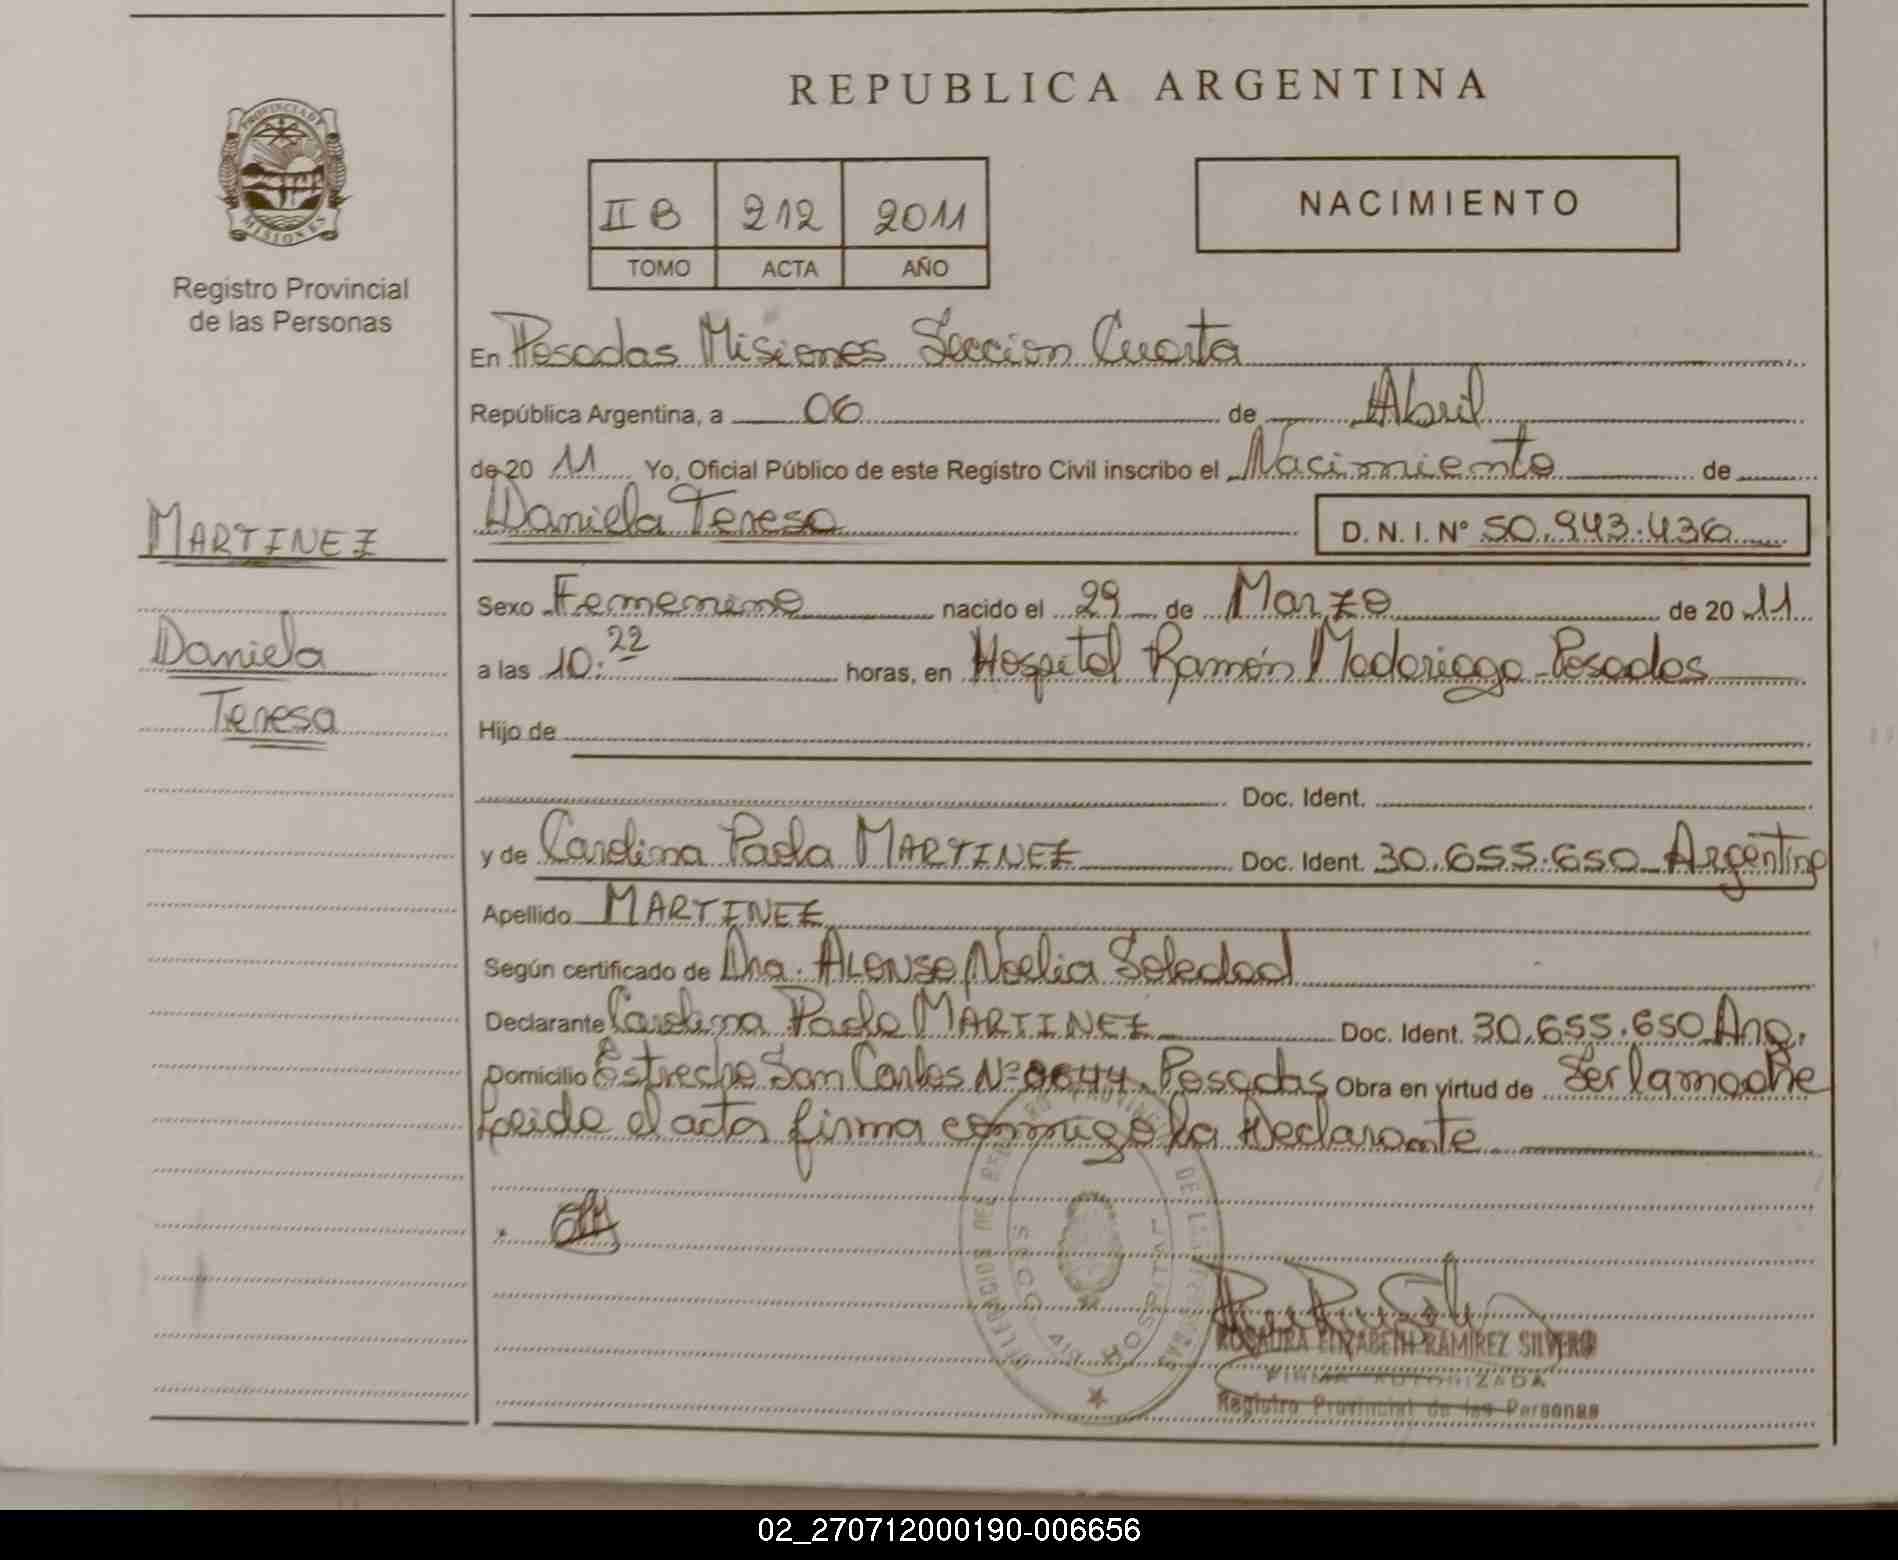 REPUBLICA ARGENTINA
PROVINCIA DE MISIONES
Registro Provincial
de las Personas
II B 212 2011
TOMO ACTA AÑO
NACIMIENTO
En Posadas Misiones Seccion Cuarta
República Argentina, a 06 de Abril
de 20 11 Yo, Oficial Público de este Registro Civil inscribo el Nacimiento de
Daniela Teresa D. N. I. N° 50.943.436
MARTINEZ
Daniela
Teresa
Sexo Femenino nacido el 29 de Marzo de 20 11
a las 10:22 horas, en Hospital Ramón Madariaga - Posadas
Hijo de
Doc. Ident.
y de Carolina Paola MARTINEZ Doc. Ident. 30.655.650 Argentina
Apellido MARTINEZ
Según certificado de Dra. ALONSO Noelia Soledad
Declarante Carolina Paola MARTINEZ Doc. Ident. 30.655.650 Arg.
Domicilio Estrecho San Carlos N° 0644 Posadas Obra en virtud de Ser la madre
Leida el acta firma conmigo la Declarante
SECC. 4ta HOSPITAL
ROSAURA ELIZABETH RAMIREZ SILVERO
FIRMA AUTORIZADA
Registro Provincial de las Personas
02_270712000190-006656